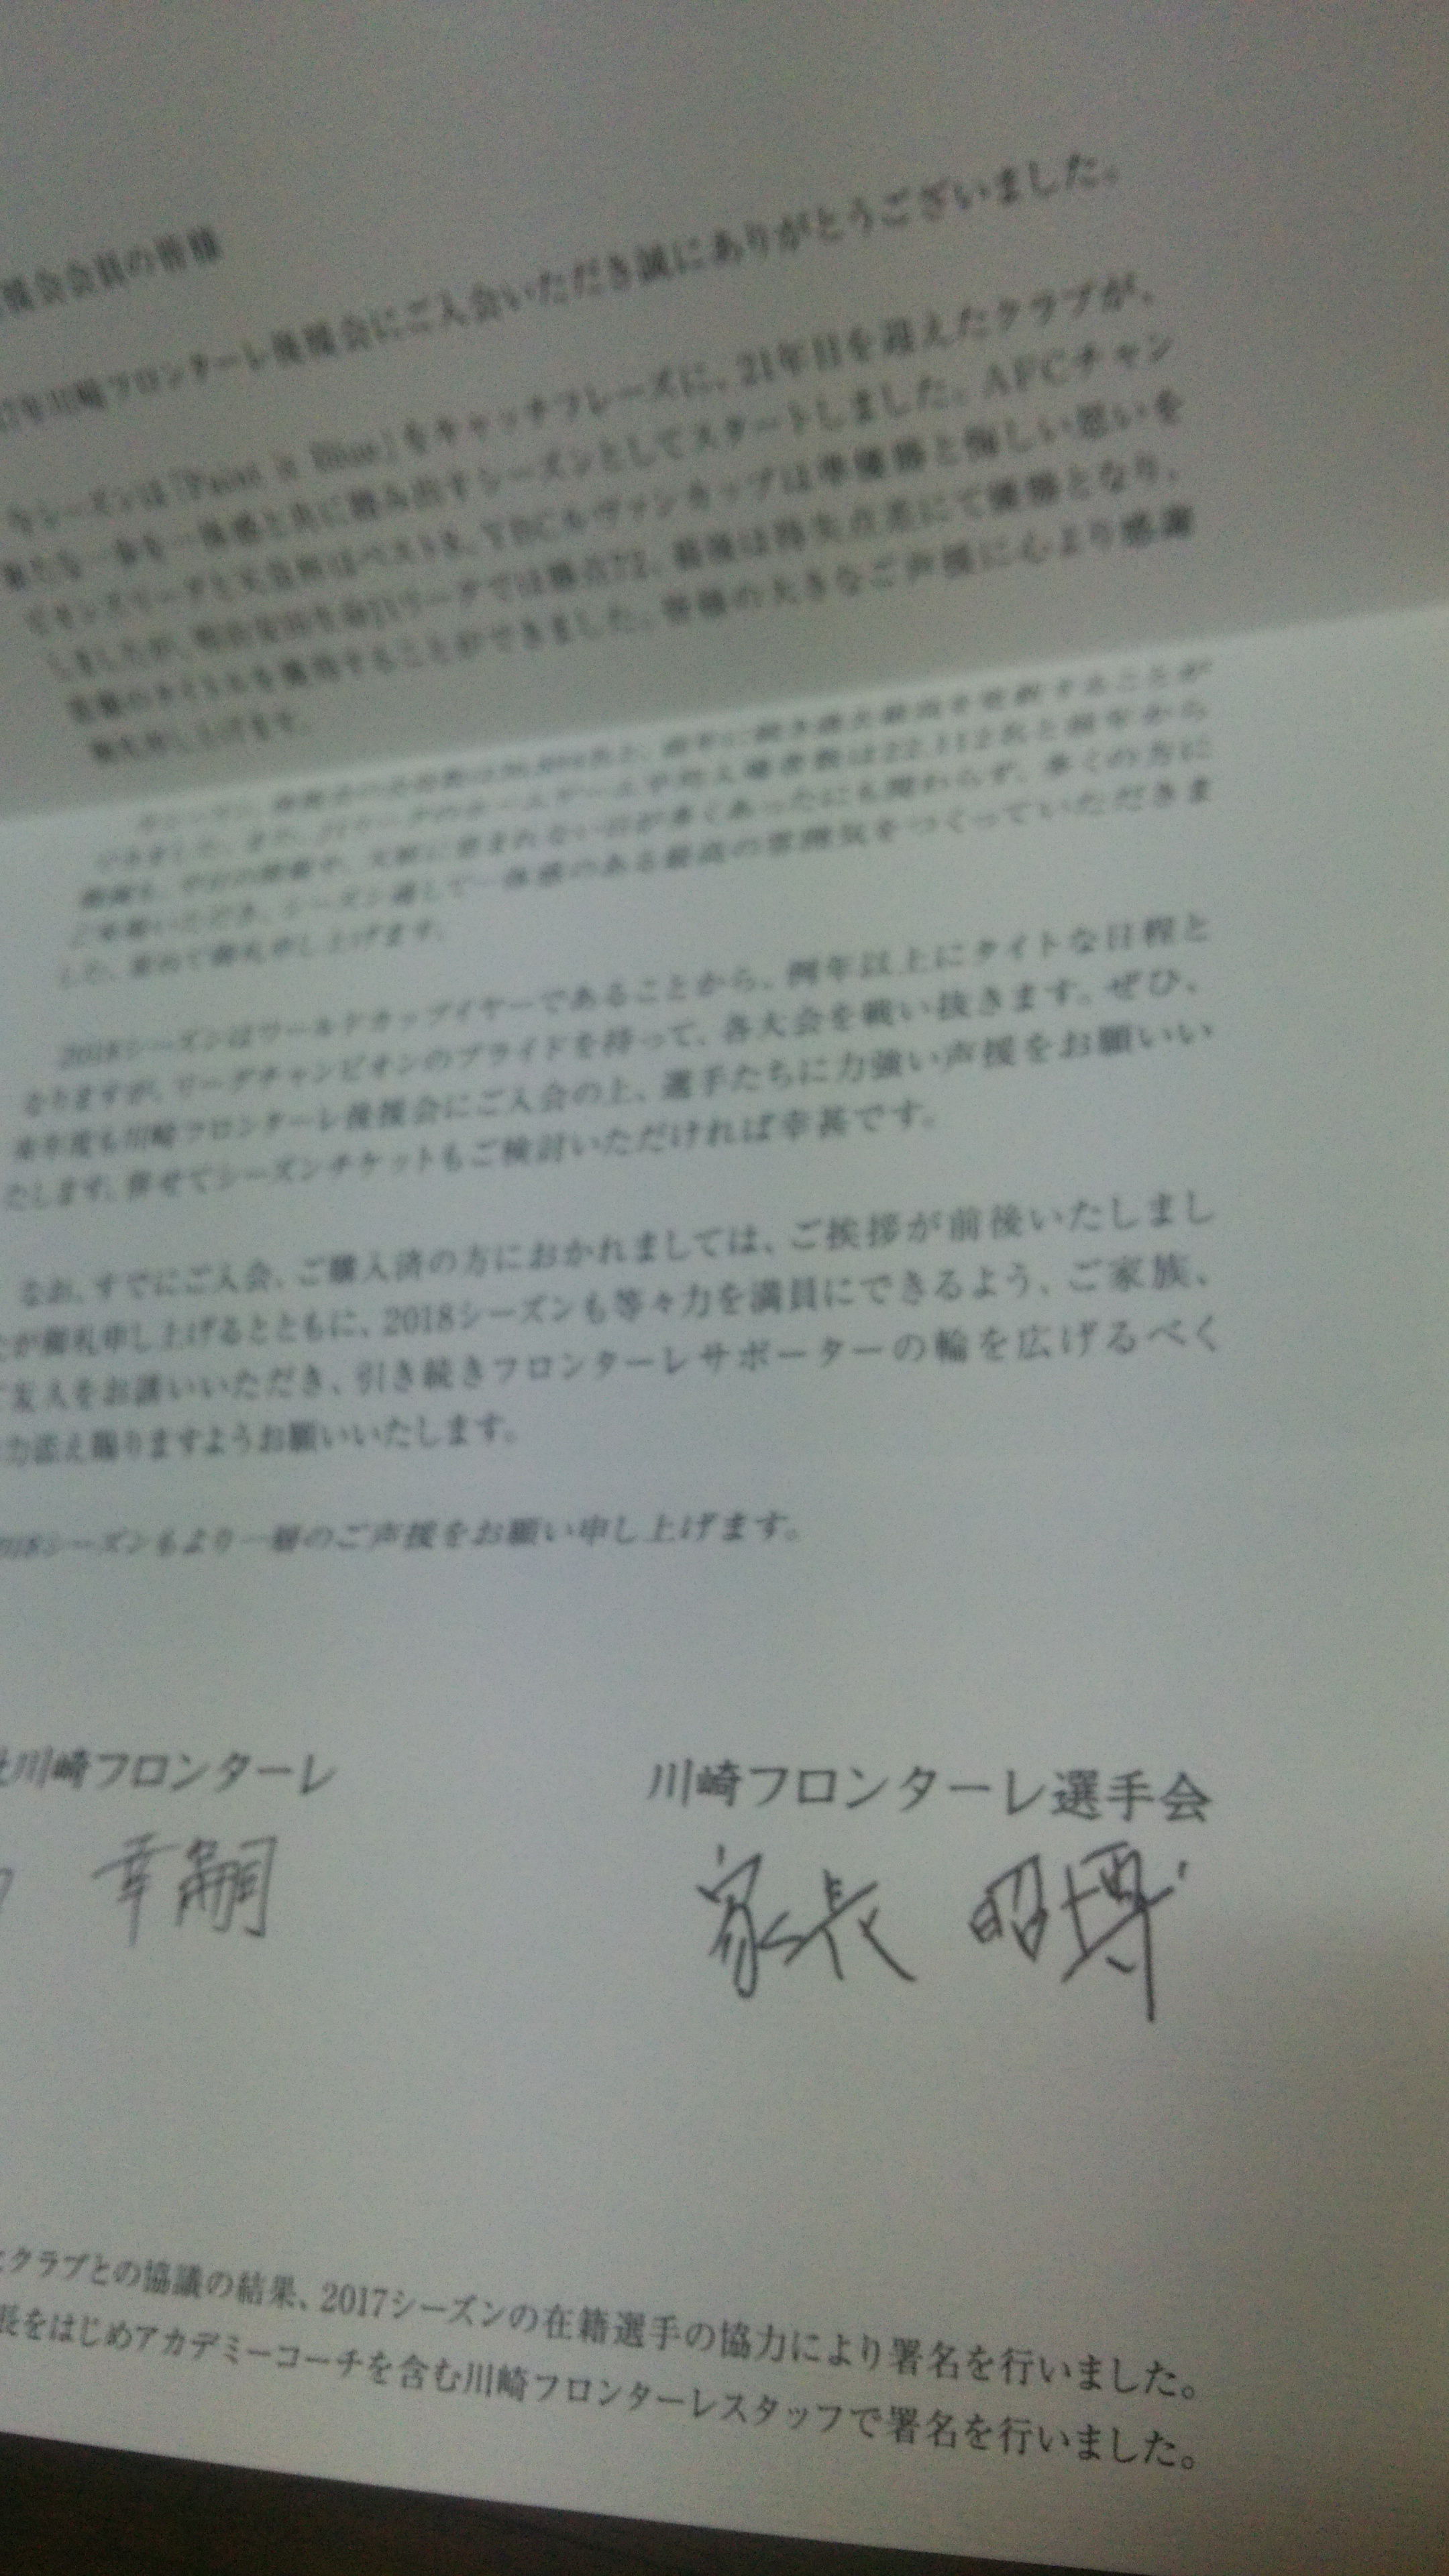 援会会員の皆様
川崎フロンターレ後援会にご入会いただき誠にありがとうございました。
今シーズンは「Paint it Blue」をキャッチフレーズに、21年目を迎えたクラブが、
新たな一歩を一体感と共に踏み出すシーズンとしてスタートしました。AFCチャン
ピオンズリーグと天皇杯はベスト8、YBCルヴァンカップは準優勝と悔しい思いを
しましたが、明治安田生命J1リーグでは勝点72、最後は得失点差にて優勝となり、
悲願のタイトルを獲得することができました。皆様の大きなご声援に心より感謝
申し上げます。
前年に続き過去最高を更新することが
できました。また、J1リーグのホームゲーム平均入場者数は22,112名と前年から
平日の開催や、天候に恵まれない日が多くあったにも関わらず、多くの方に
ご来場いただき、シーズン通して一体感のある最高の雰囲気をつくっていただきま
した。重ねて御礼申し上げます。
2018シーズンはワールドカップイヤーであることから、例年以上にタイトな日程と
なりますが、リーグチャンピオンのプライドを持って、各大会を戦い抜きます。ぜひ、
来年度も川崎フロンターレ後援会にご入会の上、選手たちに力強い声援をお願いい
たします。併せてシーズンチケットもご検討いただければ幸甚です。
なお、すでにご入会、ご購入済の方におかれましては、ご挨拶が前後いたしまし
たが御礼申し上げるとともに、2018シーズンも等々力を満員にできるよう、ご家族、
ご友人をお誘いいただき、引き続きフロンターレサポーターの輪を広げるべく
力添え賜りますようお願いいたします。
2018シーズンもより一層のご声援をお願い申し上げます。
川崎フロンターレ
幸嗣
川崎フロンターレ選手会
家長 昭博
クラブとの協議の結果、2017シーズンの在籍選手の協力により署名を行いました。
長をはじめアカデミーコーチを含む川崎フロンターレスタッフで署名を行いました。